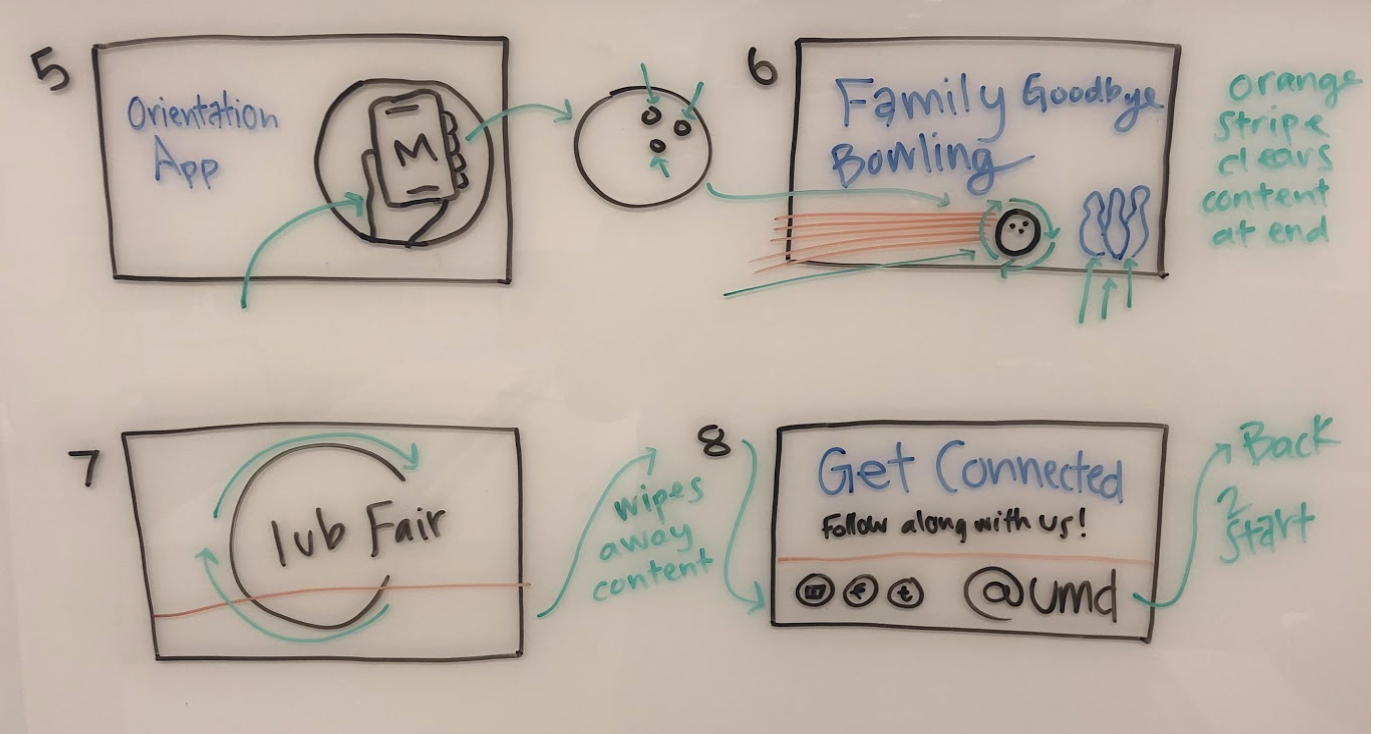 5
Orientation
App
M
6
Family Goodbye
Bowling
orange
stripe
clears
content
at end
7
lub Fair
wipes
away
content
8
Get Connected
Follow along with us!
f t @umd
Back
2
Start